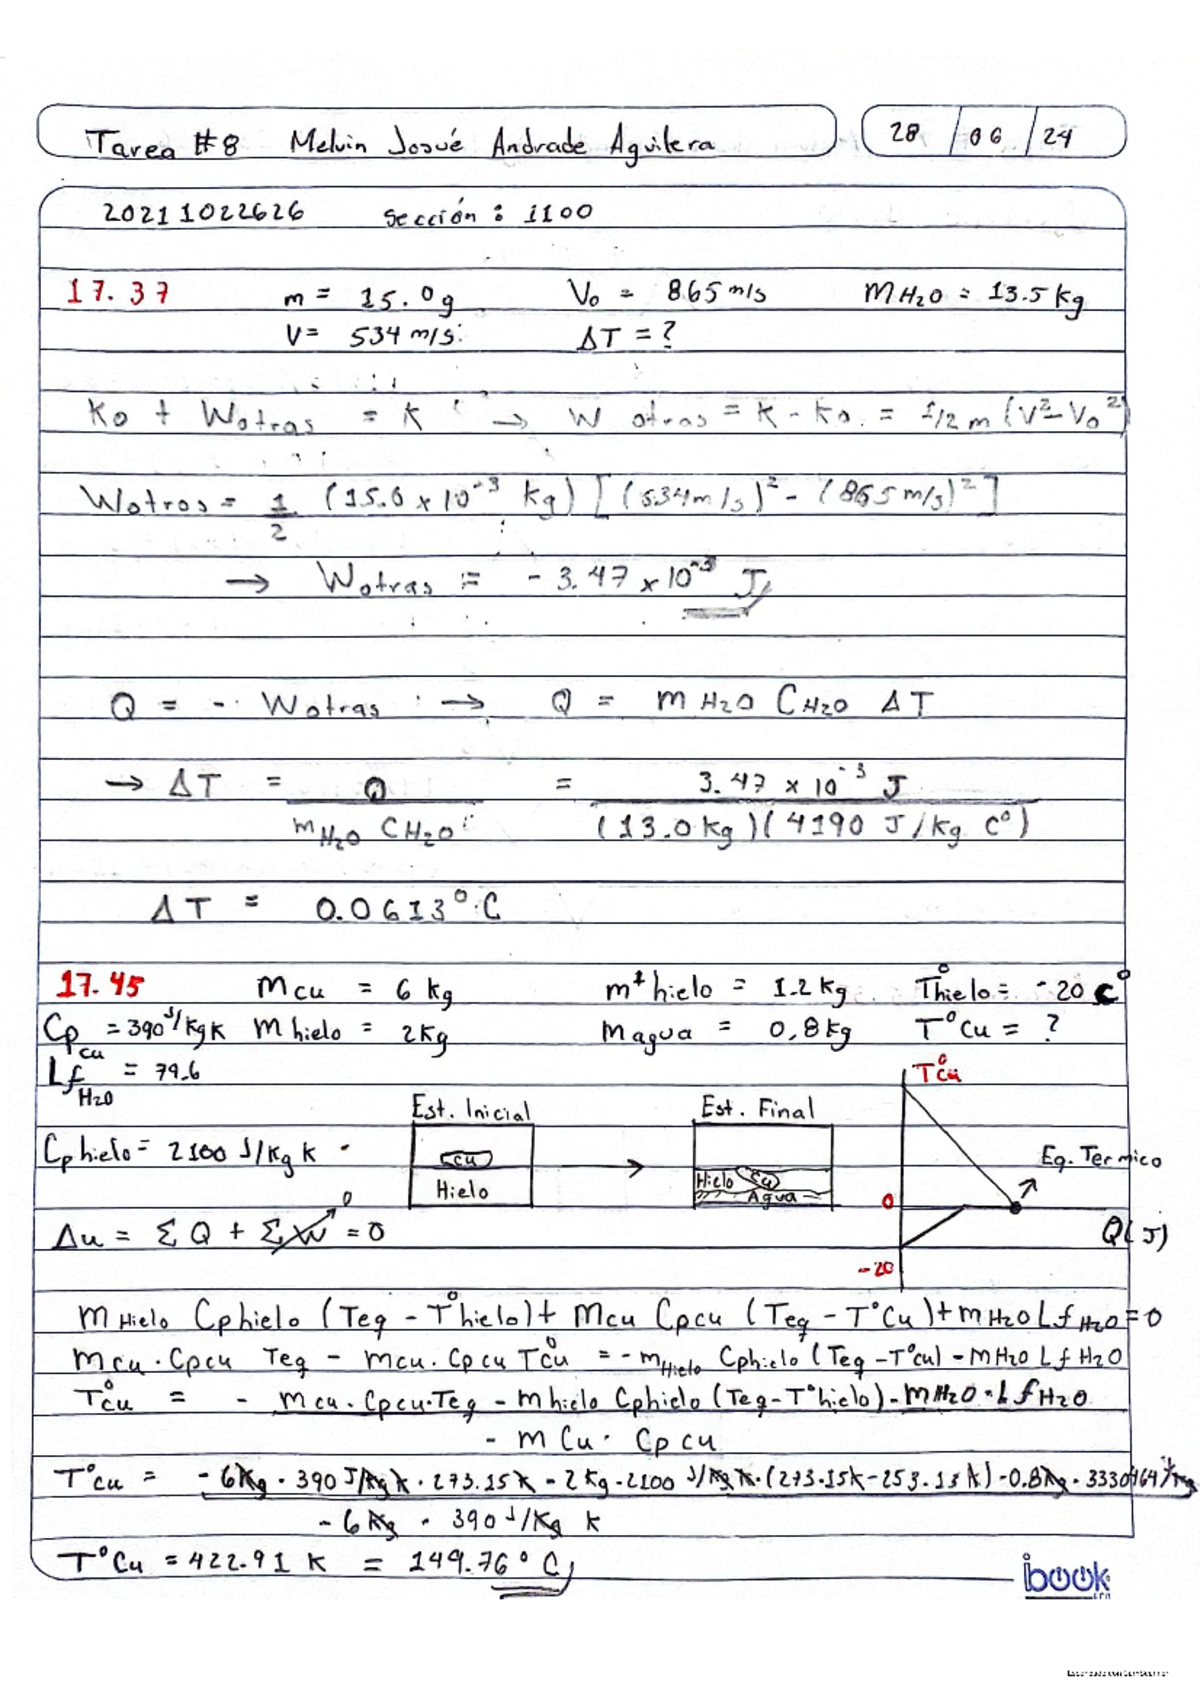 Tarea #8 Melvin Josué Andrade Aguilera 28/06/24
20211022626 sección: 1100
17.37 m = 15.0g Vo = 865 m/s MH2O = 13.5 kg
V= 534 m/s ΔT = ?
Ko + Wotras = K → W otras = K - Ko. = 1/2 m (V² - Vo²)
Wotras = 1/2 (15.0 x 10^-3 kg) [(534m/s)² - (865 m/s)²]
→ Wotras = - 3.47 x 10^-3 J
Q = - Wotras → Q = m H2O CH2O ΔT
→ ΔT = Q / mH2O CH2O = 3.47 x 10^-3 J / (13.0kg)(4190 J/kg C°)
ΔT = 0.0613°C
17.45 mcu = 6 kg m¹ hielo = 1.2 kg T°hielo = -20 C°
Cp cu = 390 J/kg K m hielo = 2Kg m agua = 0,8kg T°Cu = ?
Lf H2O = 79.6 T°cu
Est. Inicial Est. Final
Cp hielo = 2100 J/Kg K cu Hielo Hielo Cu Agua Eq. Termico
0
Δu = ΣQ + ΣW⁰ = 0 Q(J)
-20
mHielo Cphielo (Teq - T°hielo) + mcu Cpcu (Teq - T°Cu) + mH2O Lf H2O = 0
mcu · Cpcu Teq - mcu · Cpcu T°cu = - mHielo Cphielo (Teq - T°cu) - mH2O Lf H2O
T°cu = - mcu · Cpcu · Teq - mhielo Cphielo (Teq - T°hielo) - mH2O · Lf H2O
- m Cu · Cp cu
T°cu = - 6Kg · 390 J/kg K · 273.15K - 2 kg · 2100 J/kg K · (273.15K - 253.15K) - 0.8kg · 3330464 J/kg
- 6 Kg · 390 J/Kg K
T°Cu = 422.91 K = 149.76 °C
ibook